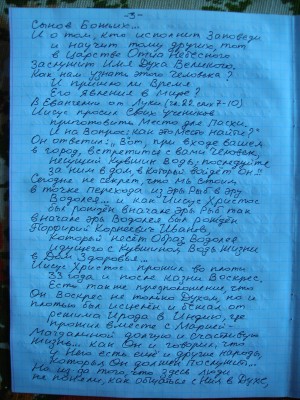 -3-
Сынов Божьих...
И о том, кто исполнит Заповеди
и научит тому других, тот
в Царство Отца Небесного
Заслужит Имя Духа Великого.
Как нам узнать этого Человека?
И пришло ли Время
Его явления в Мире?
В Евангелии от Луки (гл. 22. стих 7-10)
Иисус просит Своих учеников
приготовить Место для Пасхи.
И на Вопрос: как это Место найти?"
Он ответил: „Вот, при входе вашем
в город, встретится с вами человек,
несущий Кувшин Воды; последуйте
за ним в дом, в который войдёт он"!!
Сегодня не секрет, что мы стоим
в точке перехода из Эры Рыб в Эру
Водолея... и как Иисус Христос
был рождён в начале Эры Рыб так
в начале Эры Водолея был рождён
Порфирий Корнеевич Иванов,
Который несёт Образ Водолея
идущего с Кувшином Воды Жизни
в Дом Здоровья...
Иисус Христос прожил во плоти
33 года и после казни Воскрес,
Есть также предположение, что
Он Воскрес не только Духом, но и
плотью был исцелён и бежал от
режима Ирода в Индию, где
прожил вместе с Марией-
Магдалиной долгую и счастливую
Жизнь... как Он и говорил, что
у Него есть ещё и другие народы,
которым Он должен Послужить...
Но из-за того, что здесь люди
не поняли, как общаться с Ним в Духе,